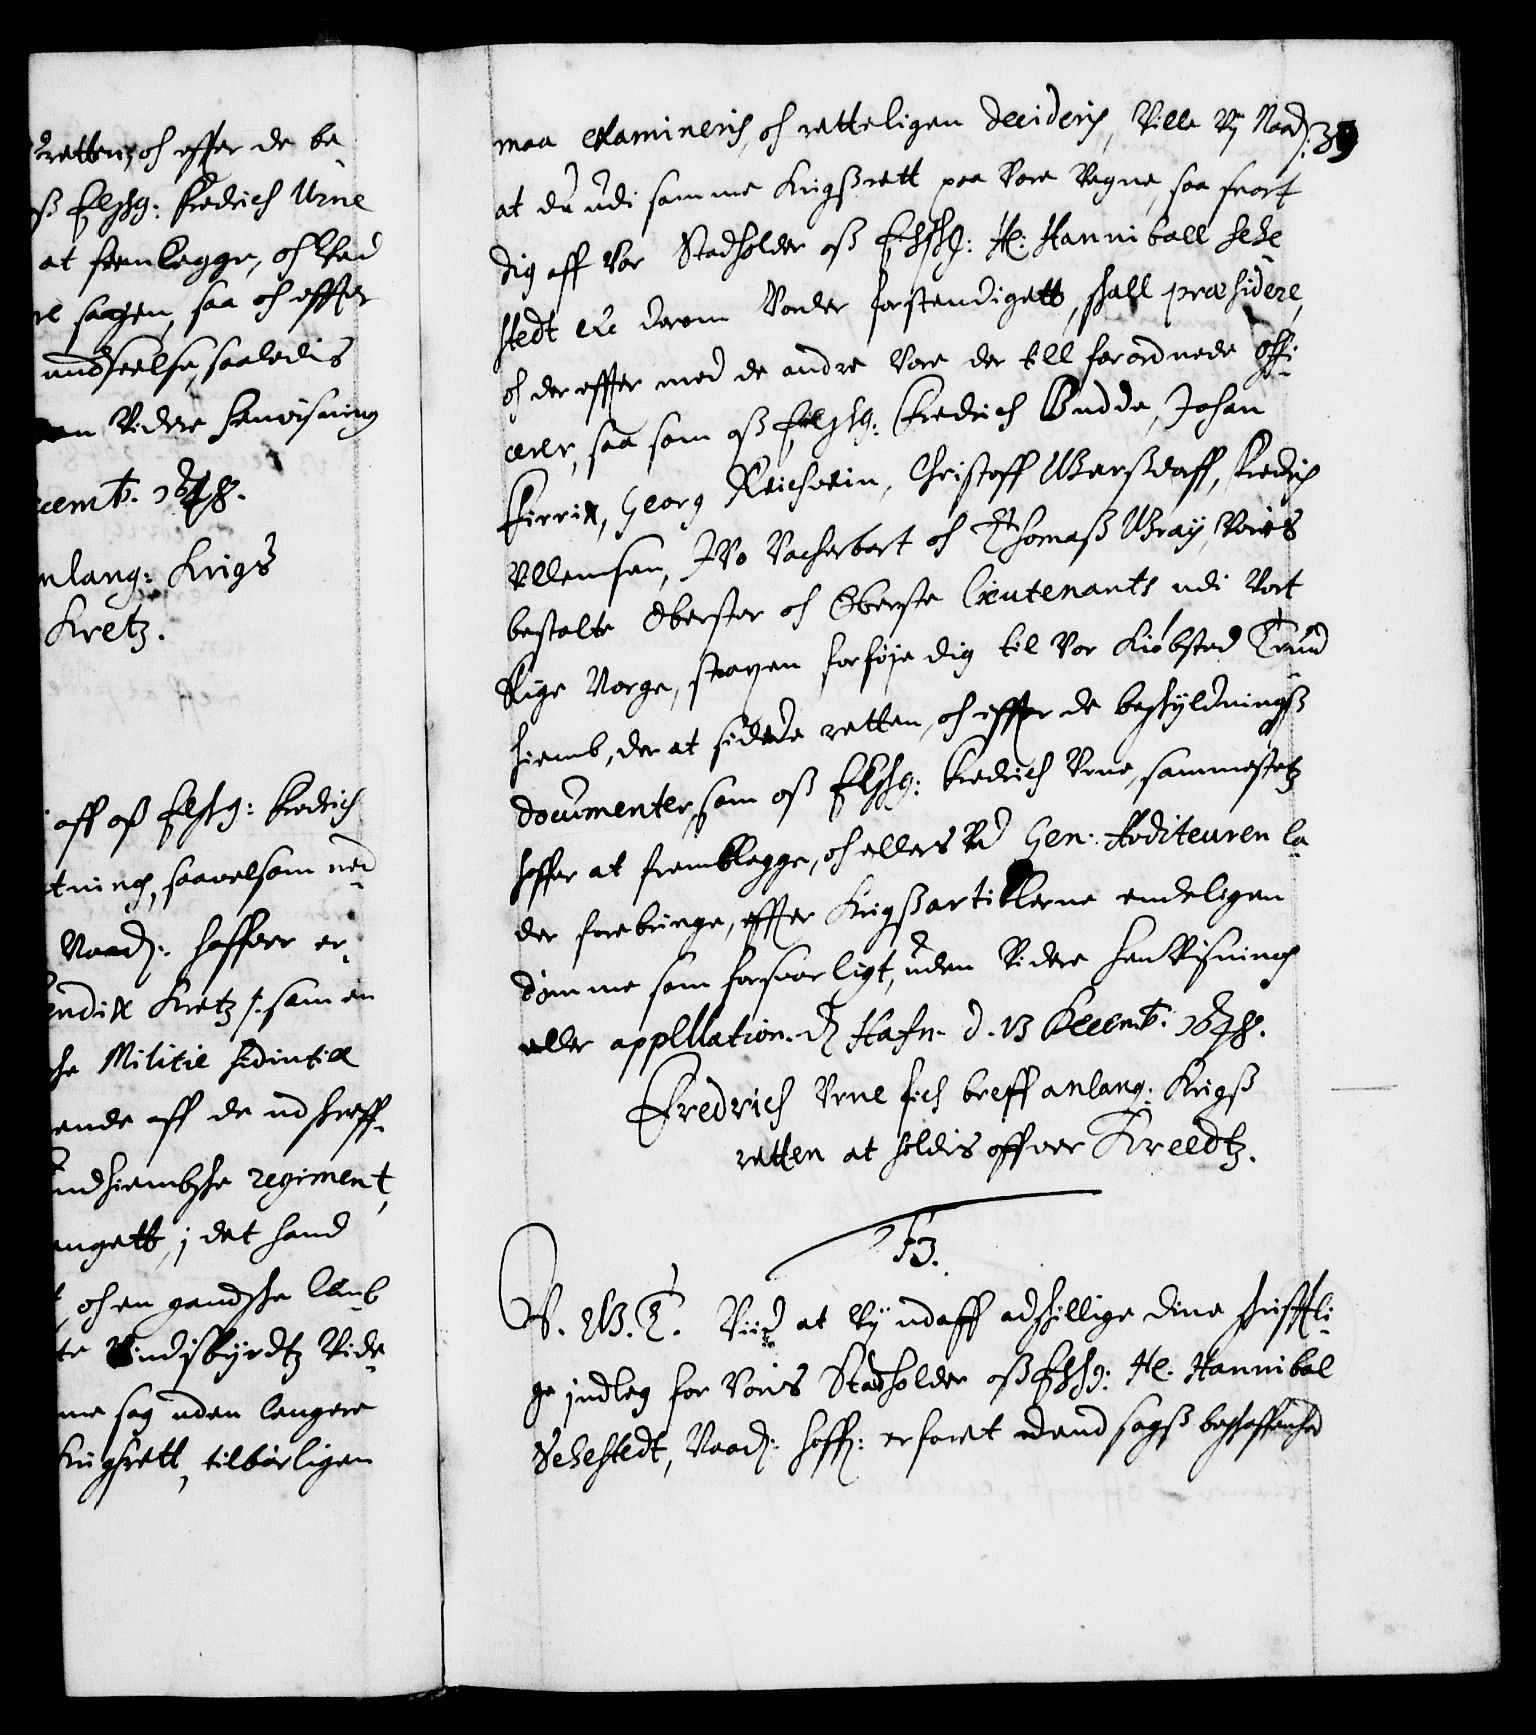 retten, och effter de be-
oß Elschg: Fredrich Urne
at fremlegge, och ved
re sagen, saa och effter
undseelse, saaledis
den videre henvisning
ecemb. 1648.
nlang: Krigs
Kretz.
aff oß Elschg: Fredrich
tning, saavelsom ved
Naad: haffver er-
endix Kretz /: som en
che Militie
ende aff de udskreff-
undhiembske regiment,
anget, i det hand
och en gandske
te videre
me sag uden lengere
Krigsrett, tilbørligen
39
maa examineris, och retteligen decideris, Ville Vi Naad:
at du udi samme Krigßrett paa Vore Vegne, saa snart
dig aff Vor Stadholder oß Elschg: H: Hanniball Sehe-
stedt etc derom Vorder forstendigett, skall præsidere,
och der effter med de andre Vore der till forordnede offi-
cerer, saa som oß Elschg: Fredrich Budde, Johan
Georg Reichvein, Christoff Fredrich
Villemsen, Ivo Vackerbart och Thomaß Gray, Voris
bestalte Oberster och Oberste lieutenants udi Vort
Rige Norge, straxen forføje dig til Vor Kiøbsted Trund
hiemb, der at sidde retten, och effter de beskyldnings
documenter, som oß Elschg: Fredrich Vrne, sammestetz
haffver at fremblegge, och ellers ved Gen: Auditeuren la-
der forebringe, effter Krigßartiklerne endeligen
dømme som forsvarligt, uden Videre henvisning
eller appellation. Hafn. d. 13 Decemb. 1648.
Fredrich Vrne fich breff anlang: Krigß
retten at holdis offver Kreedtz.
F3.
V. G. T. Viid at Vy udaff adskillige dine skrifftli-
ge indleg for Voris Stadholder oß Elschg: H. Hannibal
Sehestedt, Naad: haff: erfaret dend sags beskaffenhed